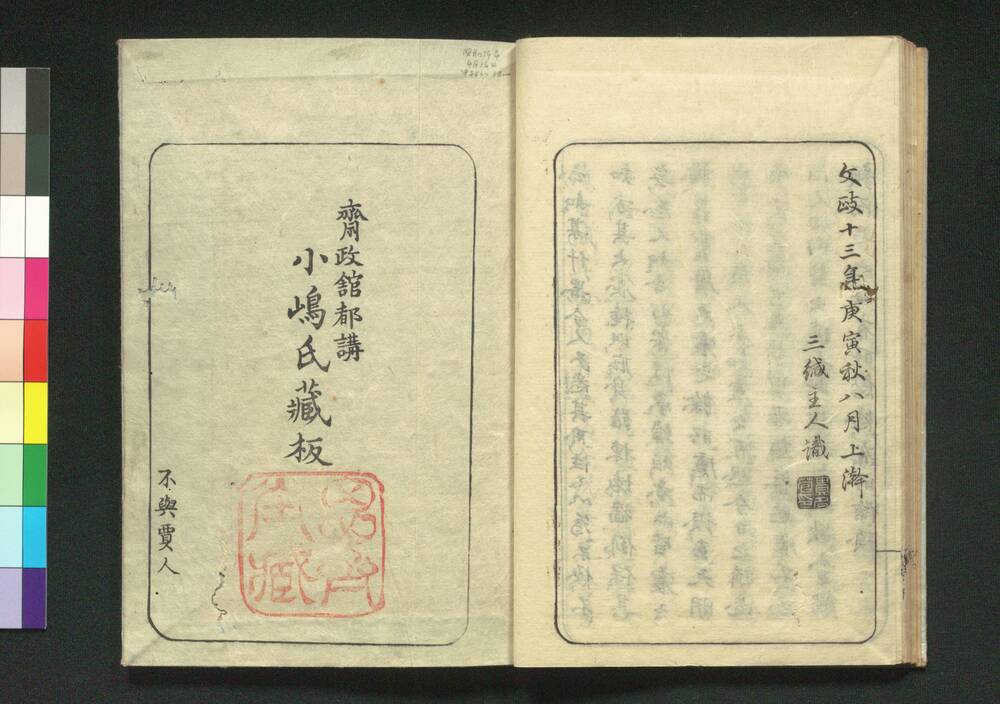 文政十三年庚寅秋八月上澣
三緘主人識
齋政舘都講
小嶋氏藏板
不與賈人